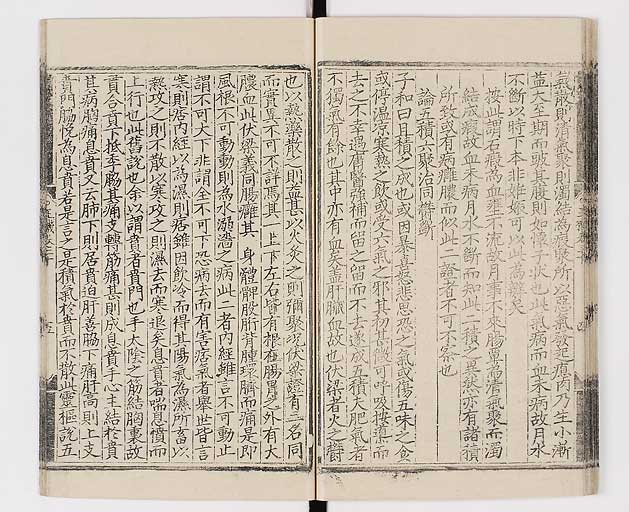 氣散則清氣聚則濁結為瘕聚所以惡氣發起瘜肉乃生小漸
益大至期而鼓其腹則如懷子狀也此氣病而血未病故月水
不斷以時下本非妊娠可以此為辨矣
按此謂石瘕為血壅不流故月事不來腸覃為清氣聚而濁
結成瘕故血未病月水不斷而知此二積之異然亦有諸積
所致或有病癰膿而似此二證者不可不察也
論五積六聚治同鬱斷
子和曰且積之成也或因暴怒喜悲思恐之氣或傷五味之食
或停溫凉寒熱之飲或受六氣之邪其初甚微可呼吸按導而
去之不幸遇庸醫強補而留之留而不去遂成五積夫肥氣者
不獨氣有餘也其中亦有血矣蓋肝臟血故也伏梁者火之欝
也以熱藥散之則益甚以火灸之則彌聚况伏梁證有二名同
而實異不可不詳焉其一上下左右皆有根在腸胃之外有大
膿血此伏梁義同腸癰其一身體髀股胻皆腫環臍而痛是即
風根不可動動則為水溺濇之病此二者內經雖言不可動止
謂不可大下非謂全不可下恐病去而有害痞氣者舉世皆言
寒則痞內經以為濕則痞雖因飲冷而得其陽氣為濕所畜以
熱攻之則不散以寒攻之則濕去而寒退矣息賁者喘息憤而
上行也此舊說也余以謂賁者賁門也手太陰之筋結胸裏故
賁合賁下抵季脇其痛支轉筋痛甚則成息賁手心主結於賁
其病胸痛息賁又云肺下則居賁迫肝善脇下痛肝高則上支
賁門脇悗為息賁若是言之是積氣於賁而不散此靈樞說五